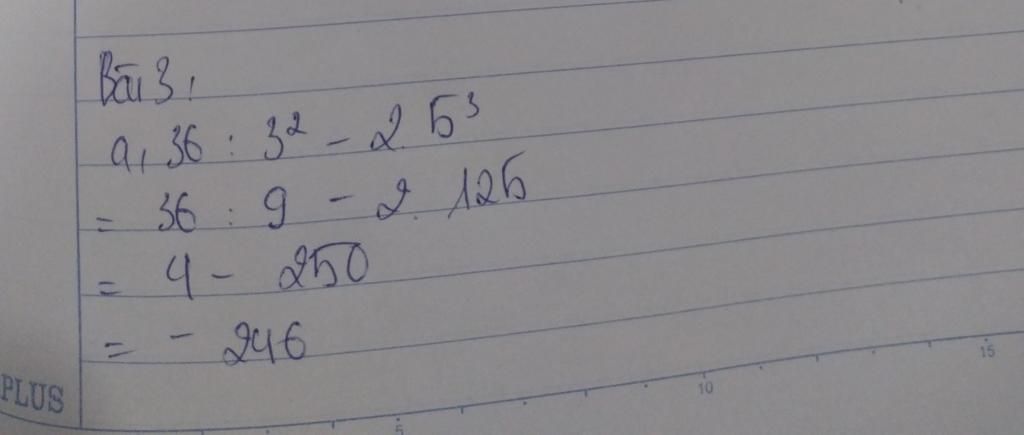 Bài 3:
a, 36 : 3² - 2. 5³
= 36 : 9 - 2. 125
= 4 - 250
= - 246
PLUS
5 10 15